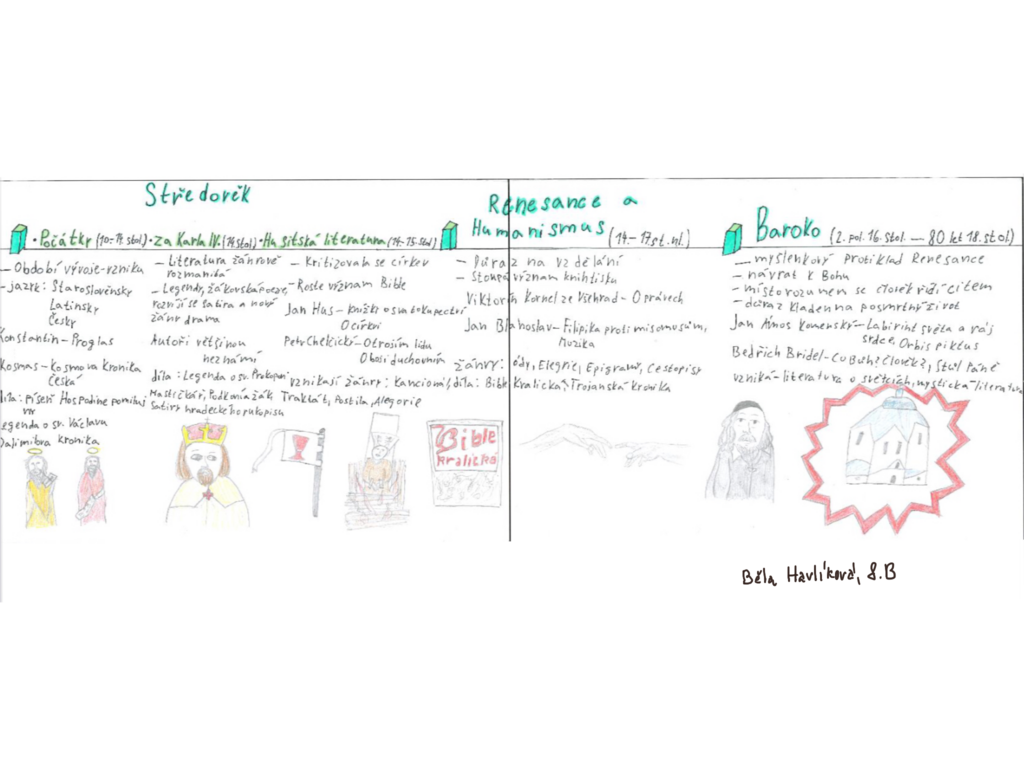 Středověk
• Počátky (10.-14. stol.) • za Karla IV. (14 stol.) • Husitská literatura (14.-15. stol.)
– Období vývoje-vzniku
– jazyk: Staroslověnsky
Latinsky
Česky
Konstantin – Proglas
Kosmas – Kosmova Kronika
Česká
díla: Píseň Hospodine pomiluj
ny
Legenda o sv. Václavu
Dalimilova kronika
– Literatura žánrově
rozmanitá
– Legendy, žákovská poezie,
rozvíjí se satira a nový
žánr drama
Autoři většinou
neznámí
díla: Legenda o sv. Prokopovi
Mastičkář, Podkoní a žák
Satiry hradeckého rukopisu
– Kritizovala se církev
– Roste význam Bible
Jan Hus – knížky o svatokupectví
O církvi
Petr Chelčický – O trojím lidu
O boji duchovním
vznikají žánry: Kancionál,
Traktát, Postila, Alegorie
Bible
Kralická
Renesance a
Humanismus (14.-17 st. nl.)
– Důraz na vzdělání
– Stoupá význam knihtisku
Viktorin Kornel ze Všehrad – O právech
Jan Blahoslav – Filipika proti misomusům,
Muzika
žánry: ódy, Elegie, Epigramy, Cestopisy
díla: Bible Kralická, Trojanská kronika
Baroko (2. pol. 16. stol. — 80 let 18. stol.)
– myšlenkový Protiklad Renesance
– návrat k Bohu
– místo rozumem se člověk řídí citem
– důraz kladen na posmrtný život
Jan Ámos Komenský – Labirint světa a ráj
srdce, Orbis piktus
Bedřich Bridel – Co Bůh? Člověk?, Stůl Páně
vzniká – literatura o světcích, mystická literatura
Běla Havlíková, 8.B